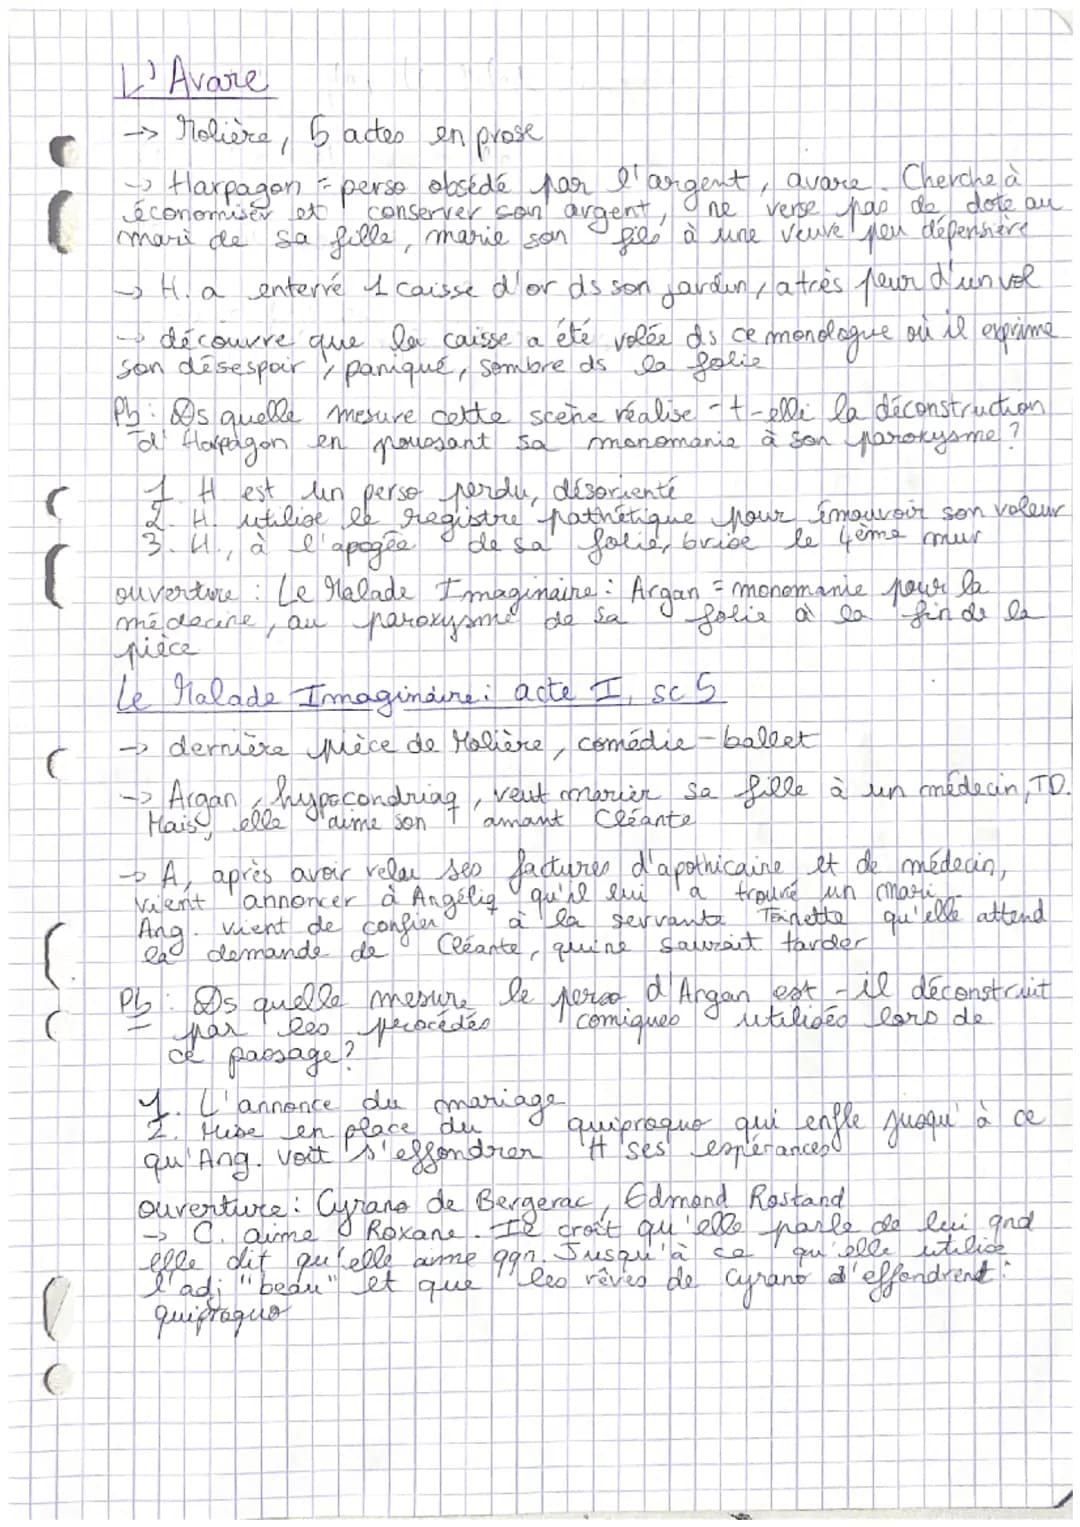 L'Avare
→ Molière, 5 actes en prose
→ Harpagon = perso obsédé par l'argent, avare. Cherche à
économiser et conserver son argent, ne verse pas de dote au
mari de sa fille, marie son fils à une veuve peu dépensière
→ H. a enterré 1 caisse d'or ds son jardin, a très peur d'un vol
→ découvre que la caisse a été volée ds ce monologue où il exprime
son désespoir, paniqué, sombre ds la folie
Pb : Ds quelle mesure cette scène réalise-t-elle la déconstruction
d'Harpagon en poussant sa monomanie à son paroxysme ?
1. H. est un perso perdu, désorienté
2. H. utilise le registre pathétique pour émouvoir son voleur
3. H., à l'apogée de sa folie, brise le 4ème mur
ouverture : Le Malade Imaginaire : Argan = monomanie pour la
médecine, au paroxysme de sa folie à la fin de la
pièce
Le Malade Imaginaire : acte I, sc 5
→ dernière pièce de Molière, comédie-ballet
→ Argan, hypocondriaq, veut marier sa fille à un médecin, TD.
Mais, elle aime son amant Cléante
→ A, après avoir relu ses factures d'apothicaire et de médecin,
vient annoncer à Angéliq qu'il lui a trouvé un mari
Ang. vient de confier à la servante Toinette qu'elle attend
la demande de Cléante, qui ne saurait tarder
Pb : Ds quelle mesure le perso d'Argan est-il déconstruit
par les procédés comiques utilisés lors de
ce passage ?
1. L'annonce du mariage
2. Mise en place du quiproquo qui enfle jusqu'à ce
qu'Ang. voit s'effondrer tt ses espérances
ouverture : Cyrano de Bergerac, Edmond Rostand
→ C. aime Roxane. Il croit qu'elle parle de lui qnd
elle dit qu'elle aime qqn. Jusqu'à ce qu'elle utilise
l'adj "beau" et que les rêves de Cyrano s'effondrent :
quiproquo